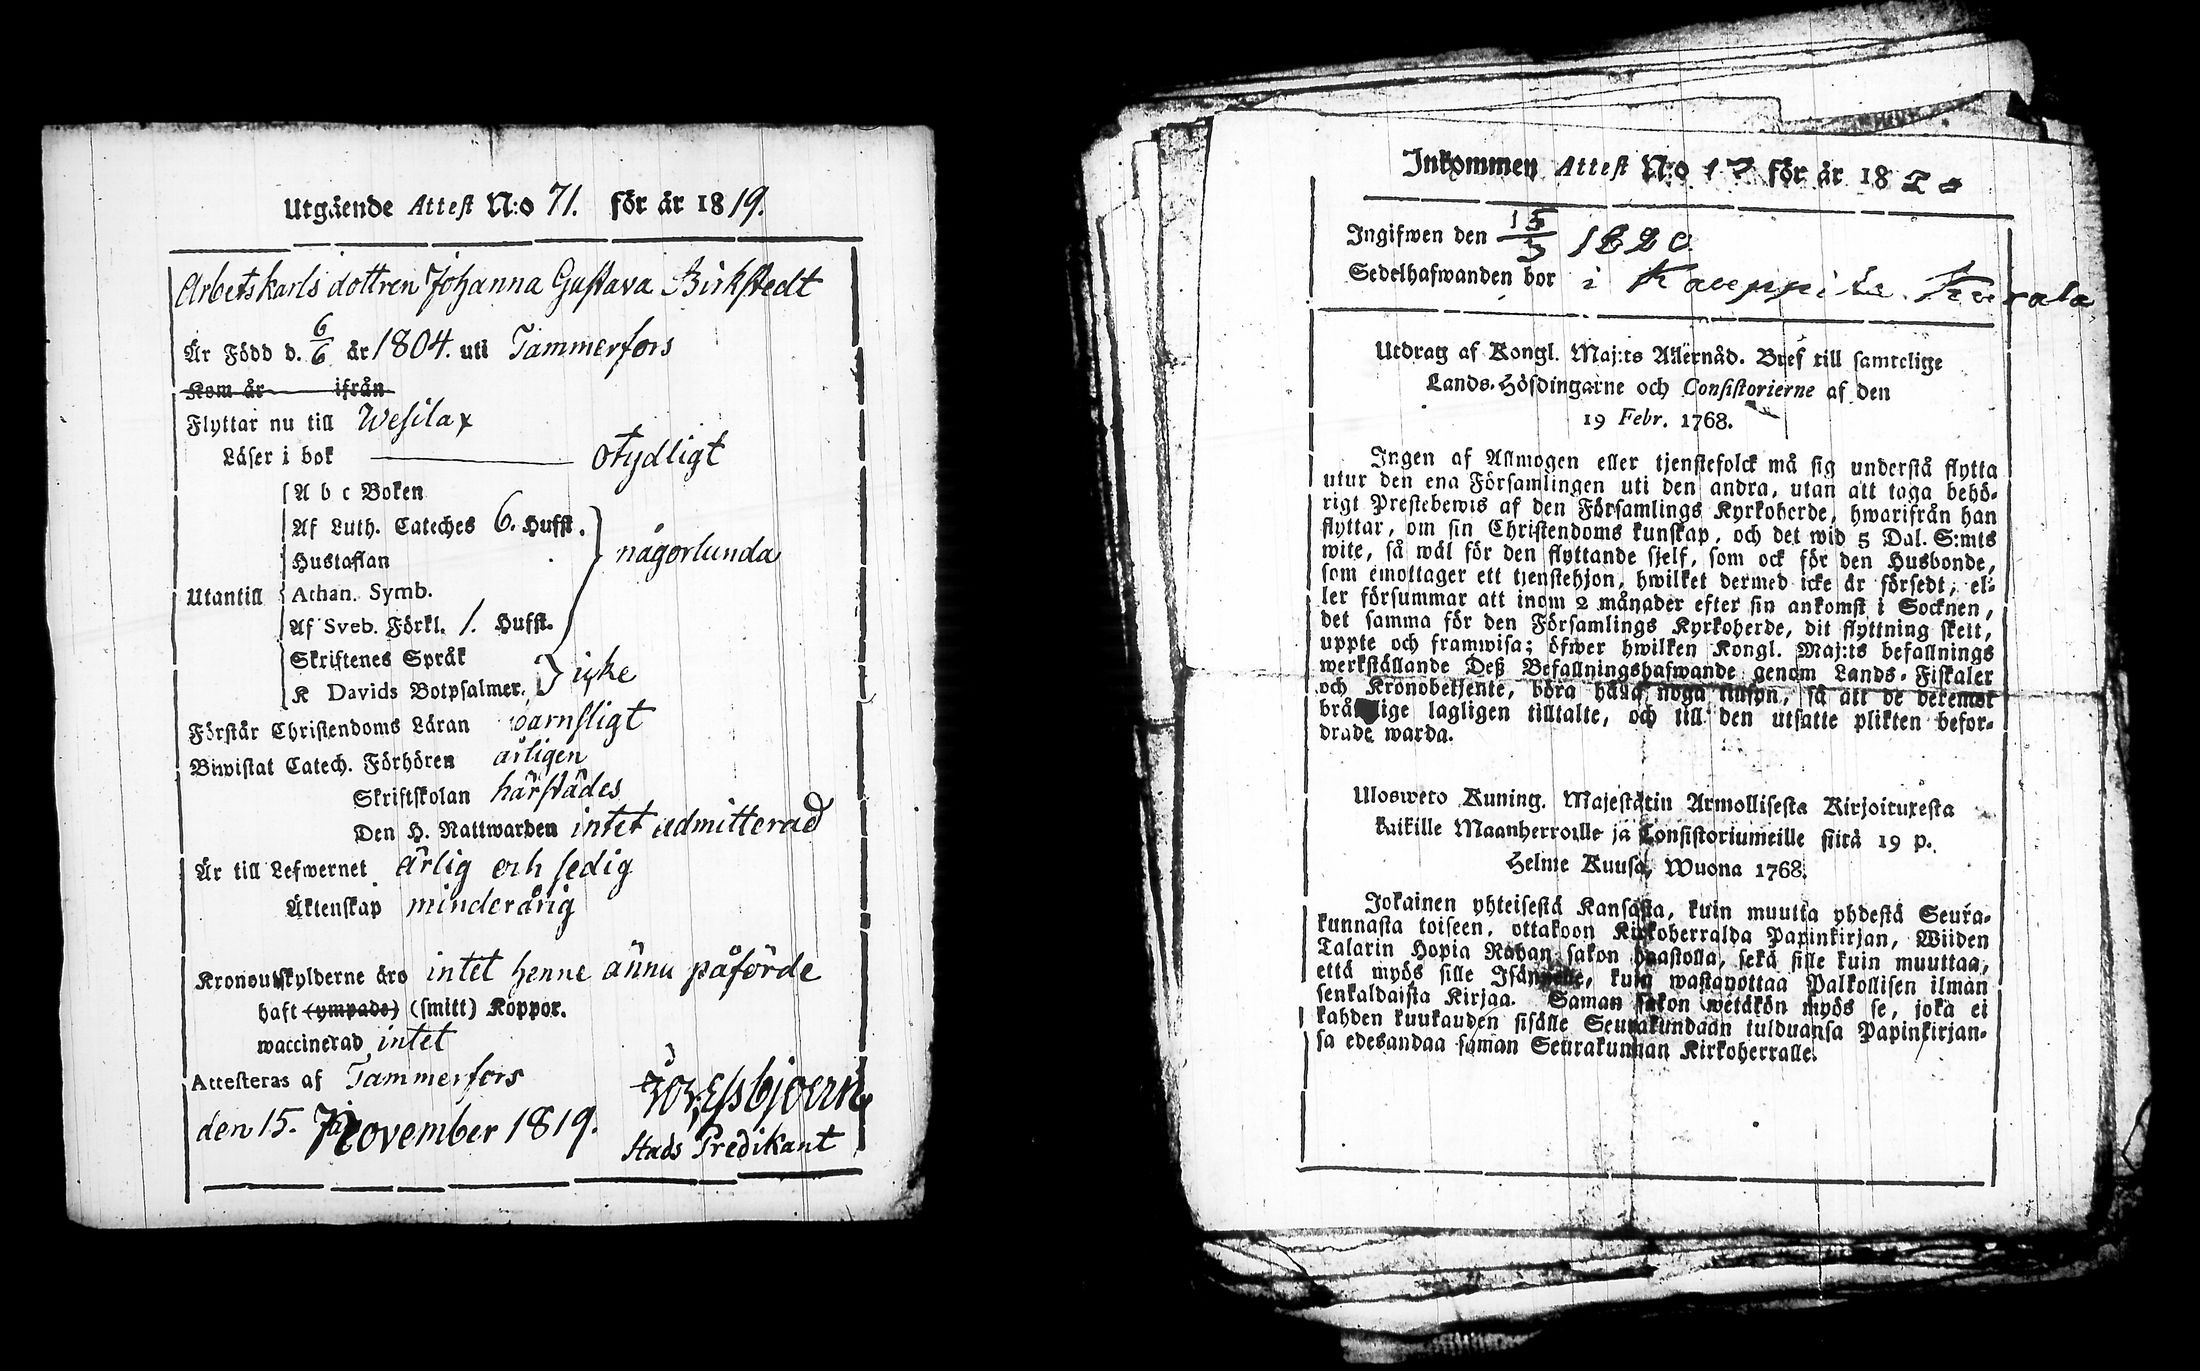 Utgående Attest N:o 71. för år 1819.
Arbetskarls dottren Johanna Gustava Birkstedt
Är Född d. 6/6 år 1804. uti Tammerfors
Kom år ifrån
Flyttar nu till Wesilax
Läser i bok otydligt
A b c Boken
Af Luth. Cateches 6. Hufst.
Hustaflan
någorlunda
Utantill
Athan. Symb.
Af Sveb. Förkl. 1. Hufst.
Skriftenes Språk
icke
K Davids Botpsalmer.
Förstår Christendoms Läran barnsligt
Biwistat Catech. Förhören årligen
Skriftskolan härstädes
Den H. Nattwarden intet admitterad
Är till Lefwernet ärlig och sedig
Äktenskap minderårig
Kronoutskylderne äro intet henne ännu påförde
haft (ympade) (smitt) Koppor.
waccinerad intet
Attesteras af Tammerfors
den 15. November 1819.
Stads Predikant
Inkommen Attest N:o 17 för år 1820
Ingifwen den 15/3 1820
Sedelhafwanden bor i
Utdrag af Kongl. Maj:ts Allernåd. Bref till samtelige
Lands-Höfdingarne och Consistorierne af den
19 Febr. 1768.
Ingen af Allmogen eller tjenstefolck må sig understå flytta
utur den ena Församlingen uti den andra, utan att taga behö-
rigt Prestebewis af den Församlings Kyrkoherde, hwarifrån han
flyttar, om sin Christendoms kunskap, och det wid 5 Dal. S:mts
wite, så wäl för den flyttande sjelf, som ock för den Husbonde,
som emottager ett tjenstehjon, hwilket dermed icke är försedt, el-
ler försummar att inom 2 månader efter sin ankomst i Socknen,
det samma för den Församlings Kyrkoherde, dit flyttning skett,
uppte och framwisa; öfwer hwilken Kongl. Maj:ts befallnings
werkställande Deß Befallningshafwande genom Lands-Fiskaler
och Kronobetjente, böra hålla noga tillsyn, så att de deremot
brått lige lagligen tilltalte, och till den utsatte plikten befor-
drade warda.
Ulosweto Kuning. Majestätin Armollisesta Kirjoituxesta
kaikille Maanherroille ja Consistoriumeille siitä 19 p.
Helme Kuusa, Wuona 1768.
Jokainen yhteisestä Kansasta, kuin muutta yhdestä Seura-
kunnasta toiseen, ottakoon Kirkoherralda Papinkirjan, Wiiden
Talarin Hopia Rahan sakon haastolla, sekä sille kuin muuttaa,
että myös sille Isännälle, kuin wastanottaa Palkollisen ilman
senkaldaista Kirjaa. Saman sakon wetäkön myös se, joka ei
kahden kuukauden sisälle Seurakundaan tulduansa Papinkirjan-
sa edesandaa saman Seurakunnan Kirkoherralle.